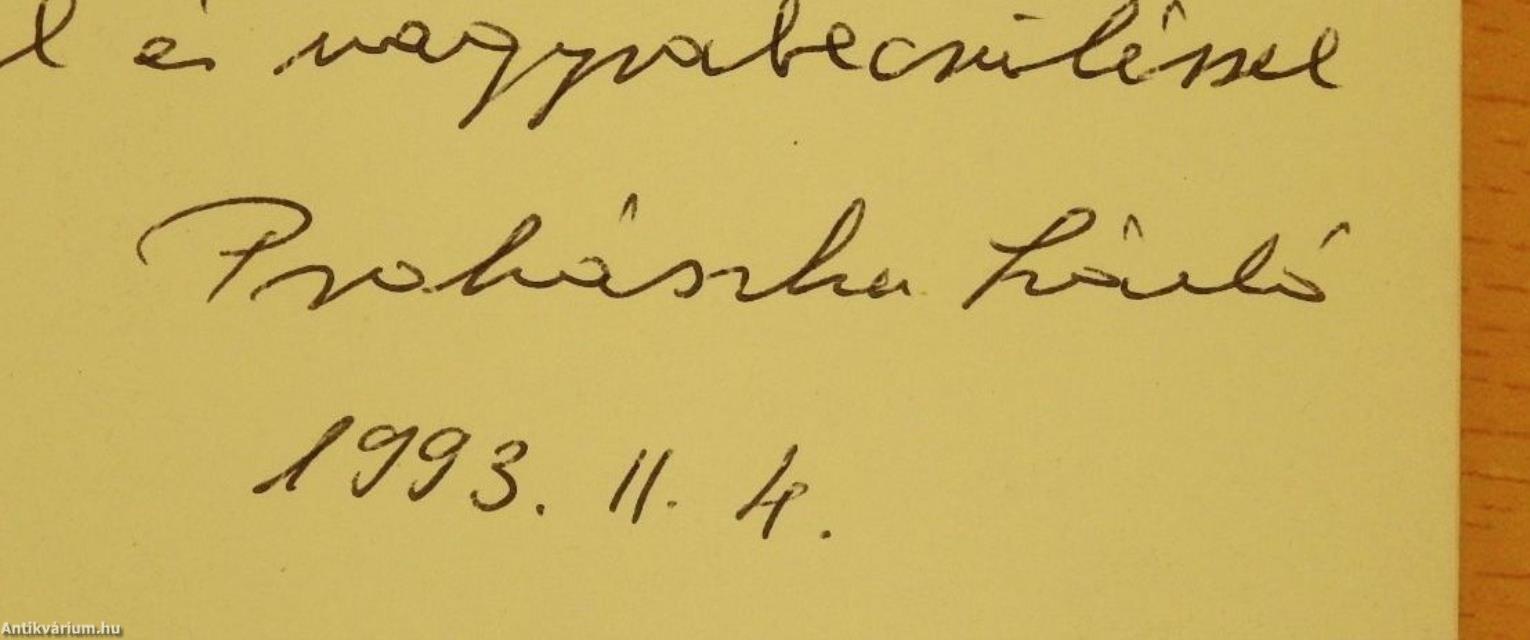 l és nagyrabecsüléssel
Prohászka László
1993. II. 4.
Antikvárium.hu